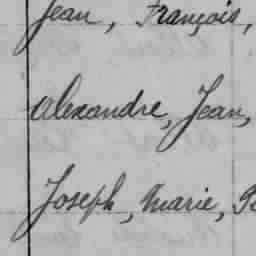 Jean, François,
Alexandre, Jean,
Joseph, Marie,